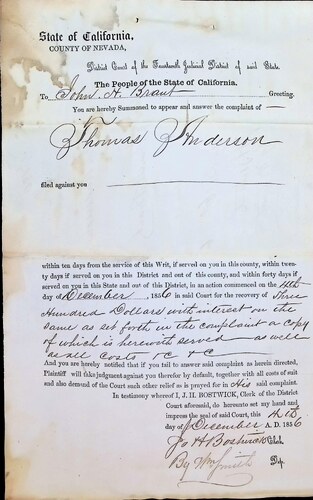 State of California.
COUNTY OF NEVADA,
District Court of the Fourteenth Judicial District of said State.
The People of the State of California.
To John H. Brant Greeting.
You are hereby Summoned to appear and answer the complaint of
Thomas Anderson
filed against you
within ten days from the service of this Writ, if served on you in this county, within twen-
ty days if served on you in this District and out of this county, and within forty days if
served on you in this State and out of this District, in an action commenced on the 4th
day of December, 1856 in said Court for the recovery of Three
Hundred Dollars with interest on the
same as set forth in the complaint a copy
of which is herewith served as well
as all Costs &C &C
And you are hereby notified that if you fail to answer said complaint as herein directed,
Plaintiff will take judgment against you therefor by default, together with all costs of suit
and also demand of the Court such other relief as is prayed for in His said complaint.
In testimony whereof I, J. H. BOSTWICK, Clerk of the District
Court aforesaid, do hereunto set my hand and
impress the seal of said Court, this 4th
day of December A. D. 1856
Jo H Bostwick Clerk
By Wm Smith Dep.